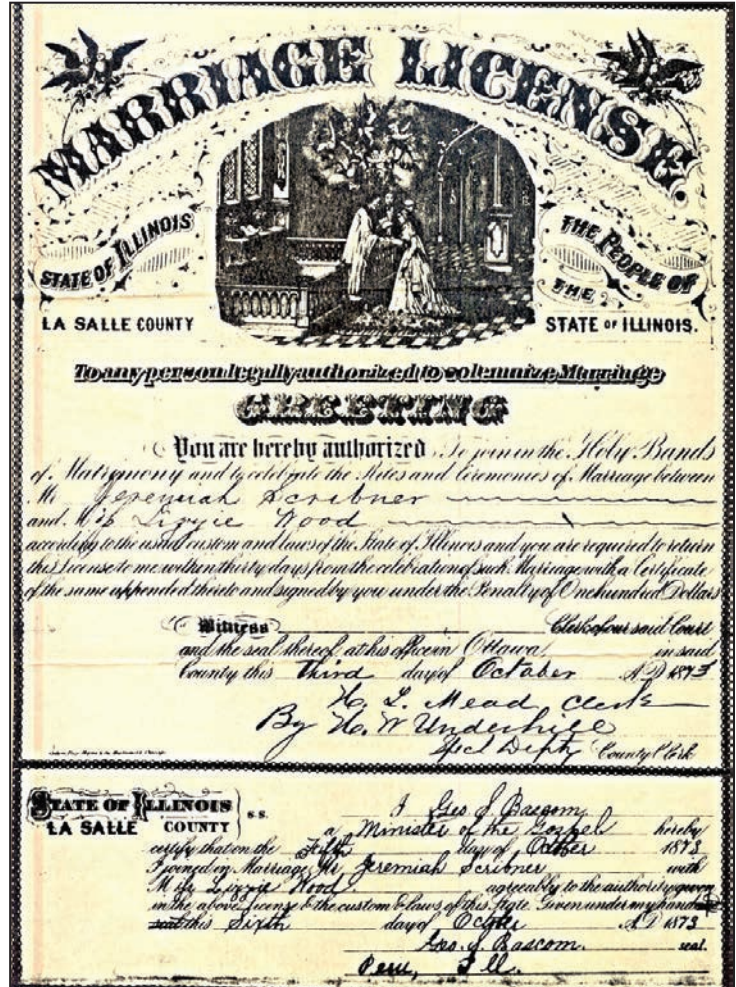 MARRIAGE LICENSE.
STATE OF ILLINOIS
THE PEOPLE OF
THE
LA SALLE COUNTY
STATE OF ILLINOIS.
To any person legally authorized to solemnize Marriage
GREETING
You are hereby authorized To join in the Holy Bands
of Matrimony and to celebrate the Rites and Ceremonies of Marriage between
Mr Jeremiah Scribner
and Miss Lizzie Wood
according to the usual custom and laws of the State of Illinois and you are required to return
this License to me within thirty days from the celebration of such Marriage with a Certificate
of the same appended thereto and signed by you under the Penalty of One hundred Dollars
Witness Clerk of our said Court
and the seal thereof, at his office in Ottawa in said
County this Third day of October A.D 1873
H. L. Mead Clerk
By H. W Underhill
Depty County Clerk
STATE OF ILLINOIS
LA SALLE COUNTY
S.S.
I Geo S Bascom
a Minister of the Gospel hereby
certify that on the Fifth day of Octber 1873
I joined in Marriage Mr Jeremiah Scribner with
Miss Lizzie Wood agreeably to the authority given
in the above License & the custom & laws of this State. Given under my hand
seal this Sixth day of Octber A.D 1873
Geo. S. Bascom. seal.
Peru, Ill.